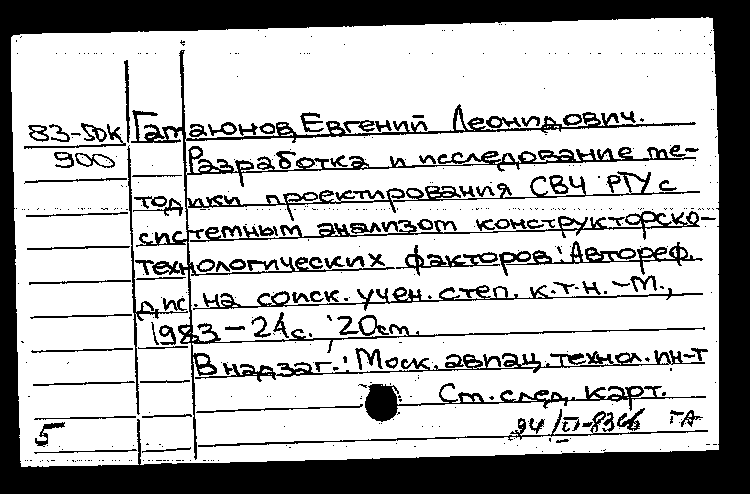 83-5ДК Гатаюнов, Евгений Леонидович.
900 Разработка и исследование ме-
тодики проектирования СВЧ РТУ с
системным анализом конструкторско-
технологических факторов: Автореф.
дис. на соиск. учен. степ. к.т.н. -М.,
1983 - 24с. ; 20см.
В надзаг.: Моск. авиац. технол. ин-т
См. след. карт.
5
ГА